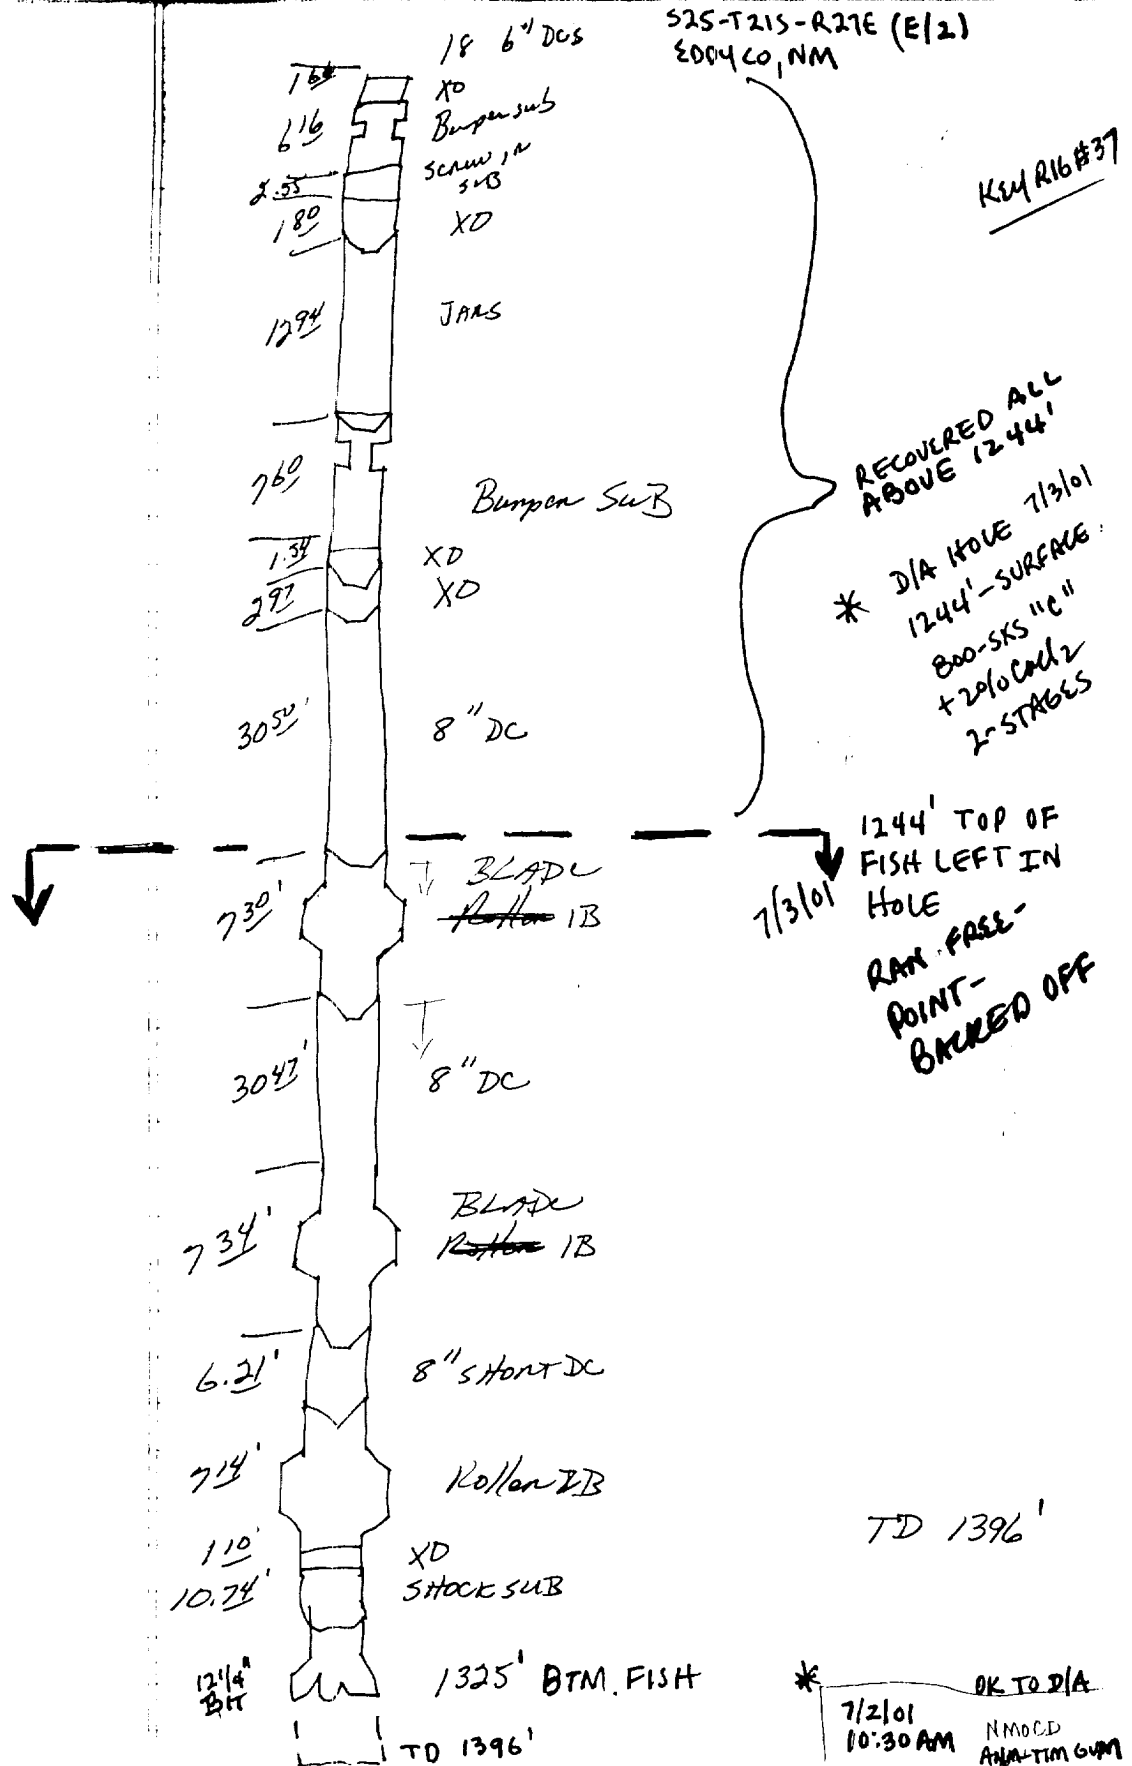 S25-T21S-R27E (E/2)
EDDY CO, NM
18 6" DCs
XO
6 16
Bumper sub
screw in
sub
2.55
1 80
XO
KEY R16 #37
12 94
JARS
7 60
Bumper SUB
1.54
XO
2 97
XO
RECOVERED ALL
ABOVE 1244'
* D/A HOLE 7/3/01
1244'-SURFACE
800-SKS "C"
+2% CaCl2
2-STAGES
30 50'
8" DC
1244' TOP OF
FISH LEFT IN
HOLE
7/3/01
RAN FREE-
POINT-
BACKED OFF
7 30'
BLADE
Roller IB
30 47'
8" DC
7 34'
BLADE
Roller IB
6.21'
8" SHORT DC
7 14'
Roller IB
TD 1396'
1 10'
XO
10.74'
SHOCK SUB
12 1/4"
BIT
1325' BTM. FISH
TD 1396'
* OK TO D/A
7/2/01
10:30 AM
NMOCD
TIM GUM